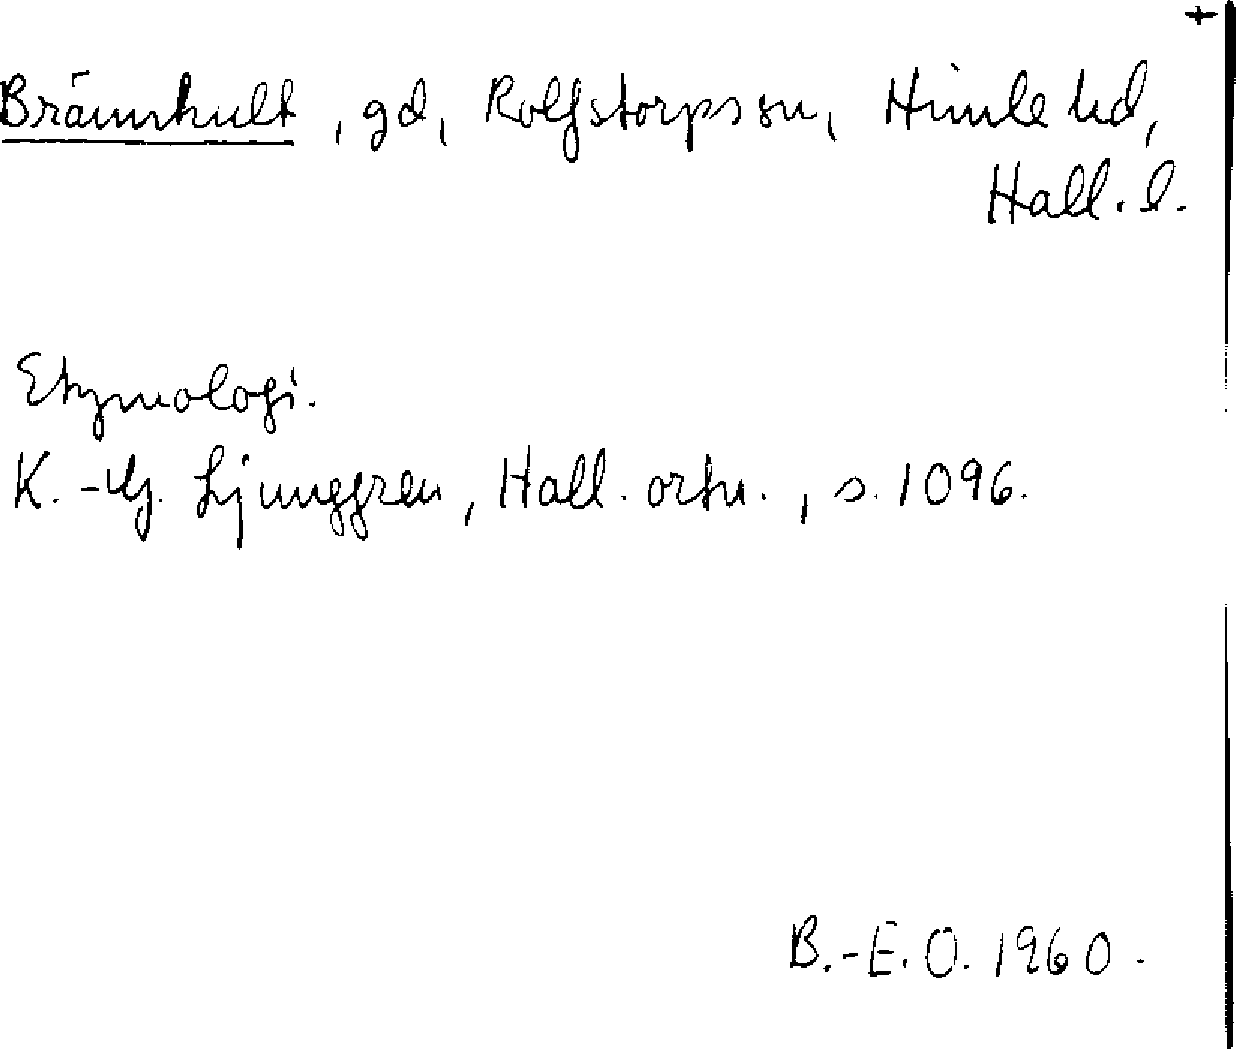 Brännhult, gd, Rolfstorps sn, Himle hd,
Hall. l.
Etymologi.
K.-G. Ljunggren, Hall. ortn., s. 1096.
B.-E. O. 1960.